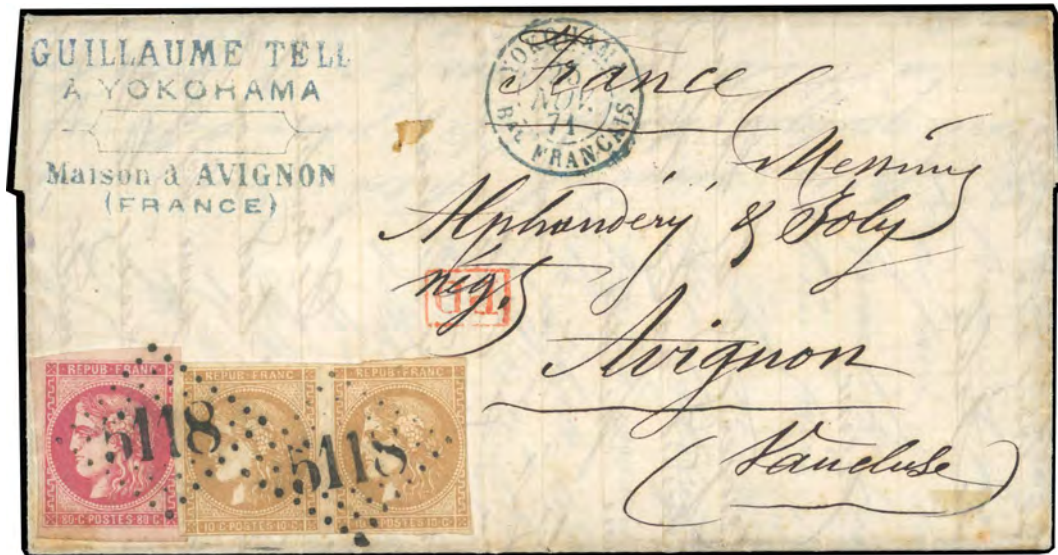 GUILLAUME TELL
A YOKOHAMA
Maison à AVIGNON
(FRANCE)
YOKOHAMA
NOV.
71
Bau FRANCAIS
France
Messieurs
Alphandéry & Joly
nég.
PD
Avignon
Vaucluse
REPUB·FRANC
80·C·POSTES·80·C
REPUB·FRANC
10·C·POSTES·10·C
REPUB·FRANC
10·C·POSTES·10·C
5118
5118